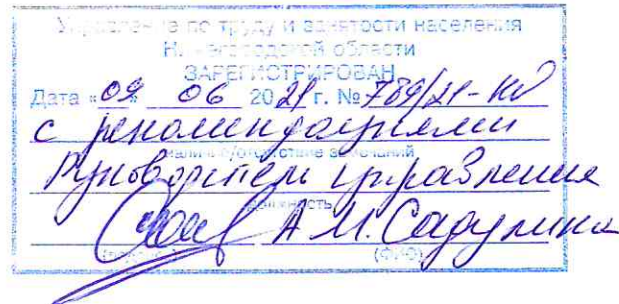 Управление по труду и занятости населения
Нижегородской области
ЗАРЕГИСТРИРОВАН
Дата «09» 06 2021 г. № 789/21-КД
с рекомендациями
наличие/отсутствие замечаний
Руководитель управления
должность
А.М. Садулина
(ФИО)